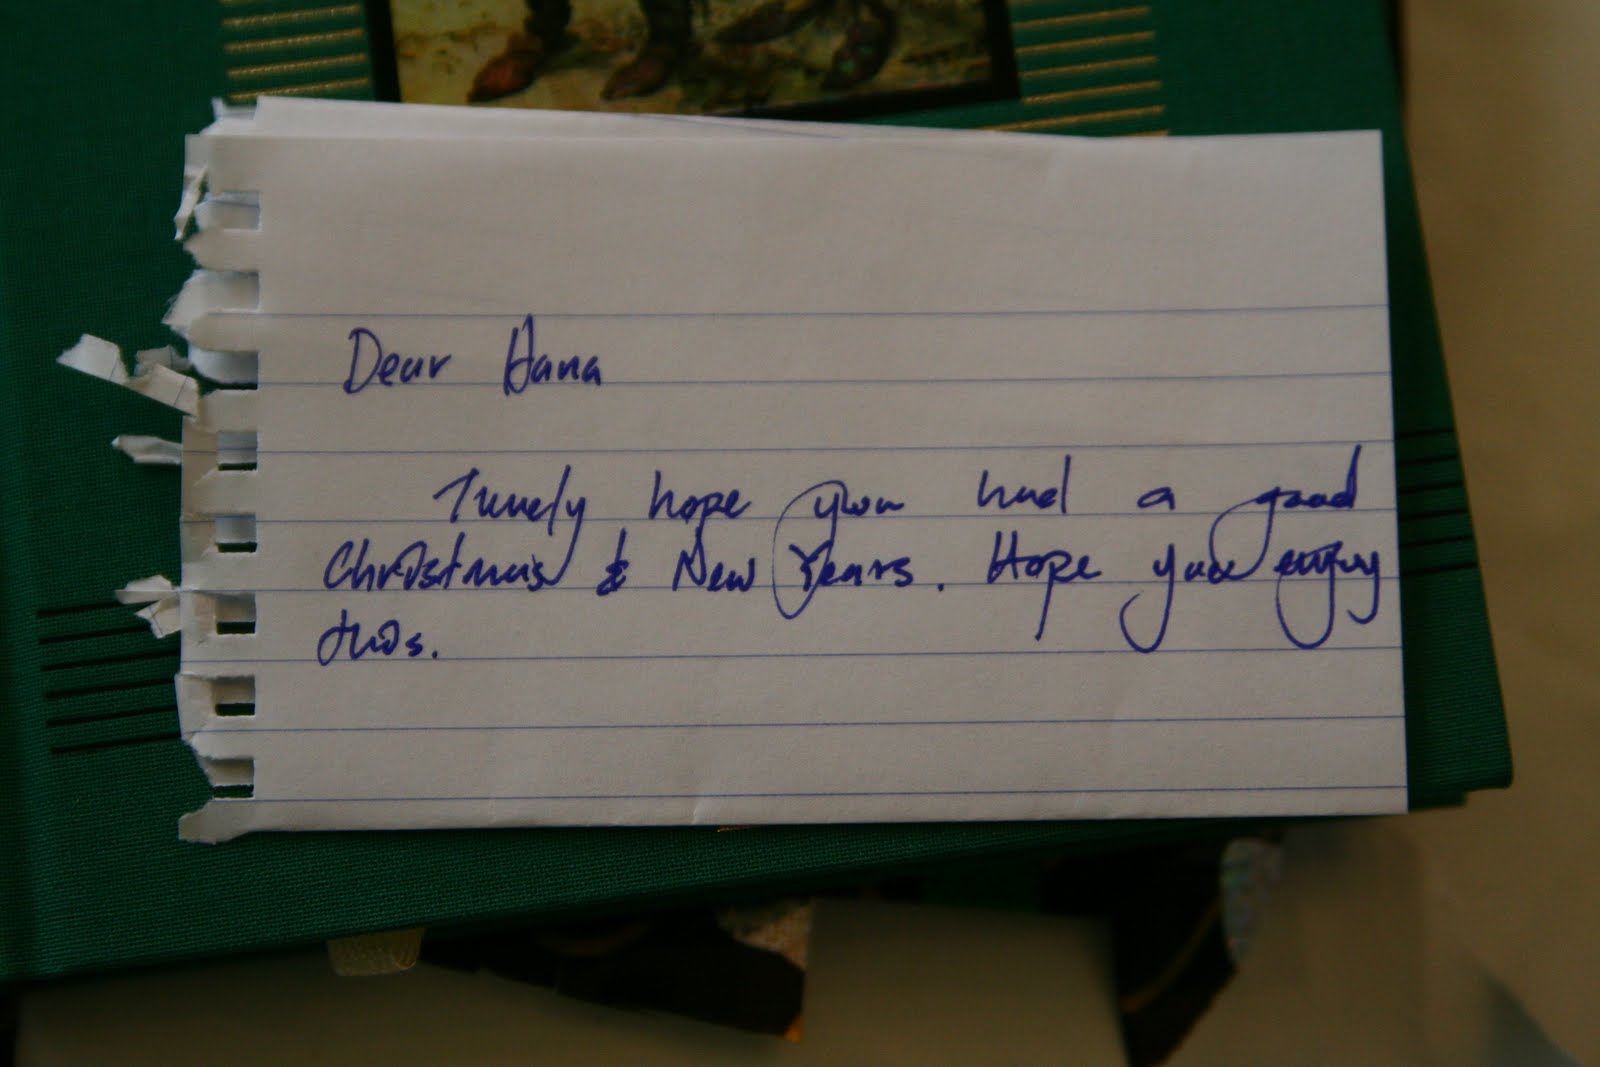 Dear Hana
Truely hope you had a good
Christmas & New Years. Hope you enjoy
this.